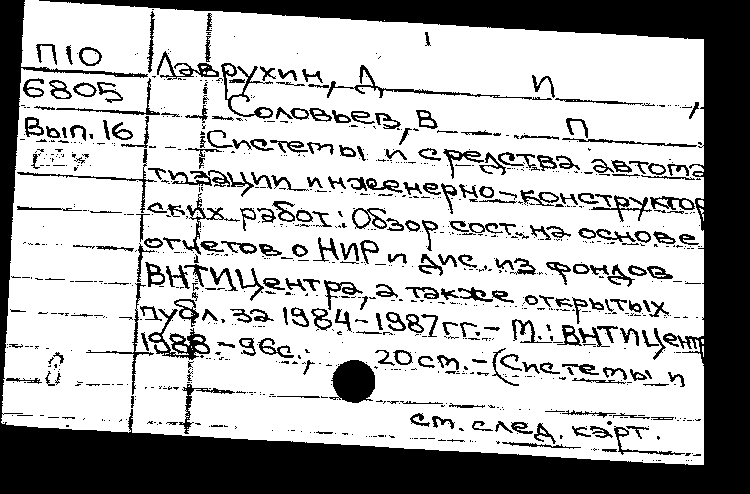 1
П10
Лаврухин, Д И,
6805
Соловьев, В П
Вып. 16
Системы и средства автома
тизации инженерно-конструктор
ских работ: Обзор сост. на основе
отчетов о НИР и дис. из фондов
ВНТИЦентра, а также открытых
публ. за 1984-1987 гг. - М.: ВНТИЦентр
1988. - 96с.; 20 см. - (Системы и
8
см. след. карт.